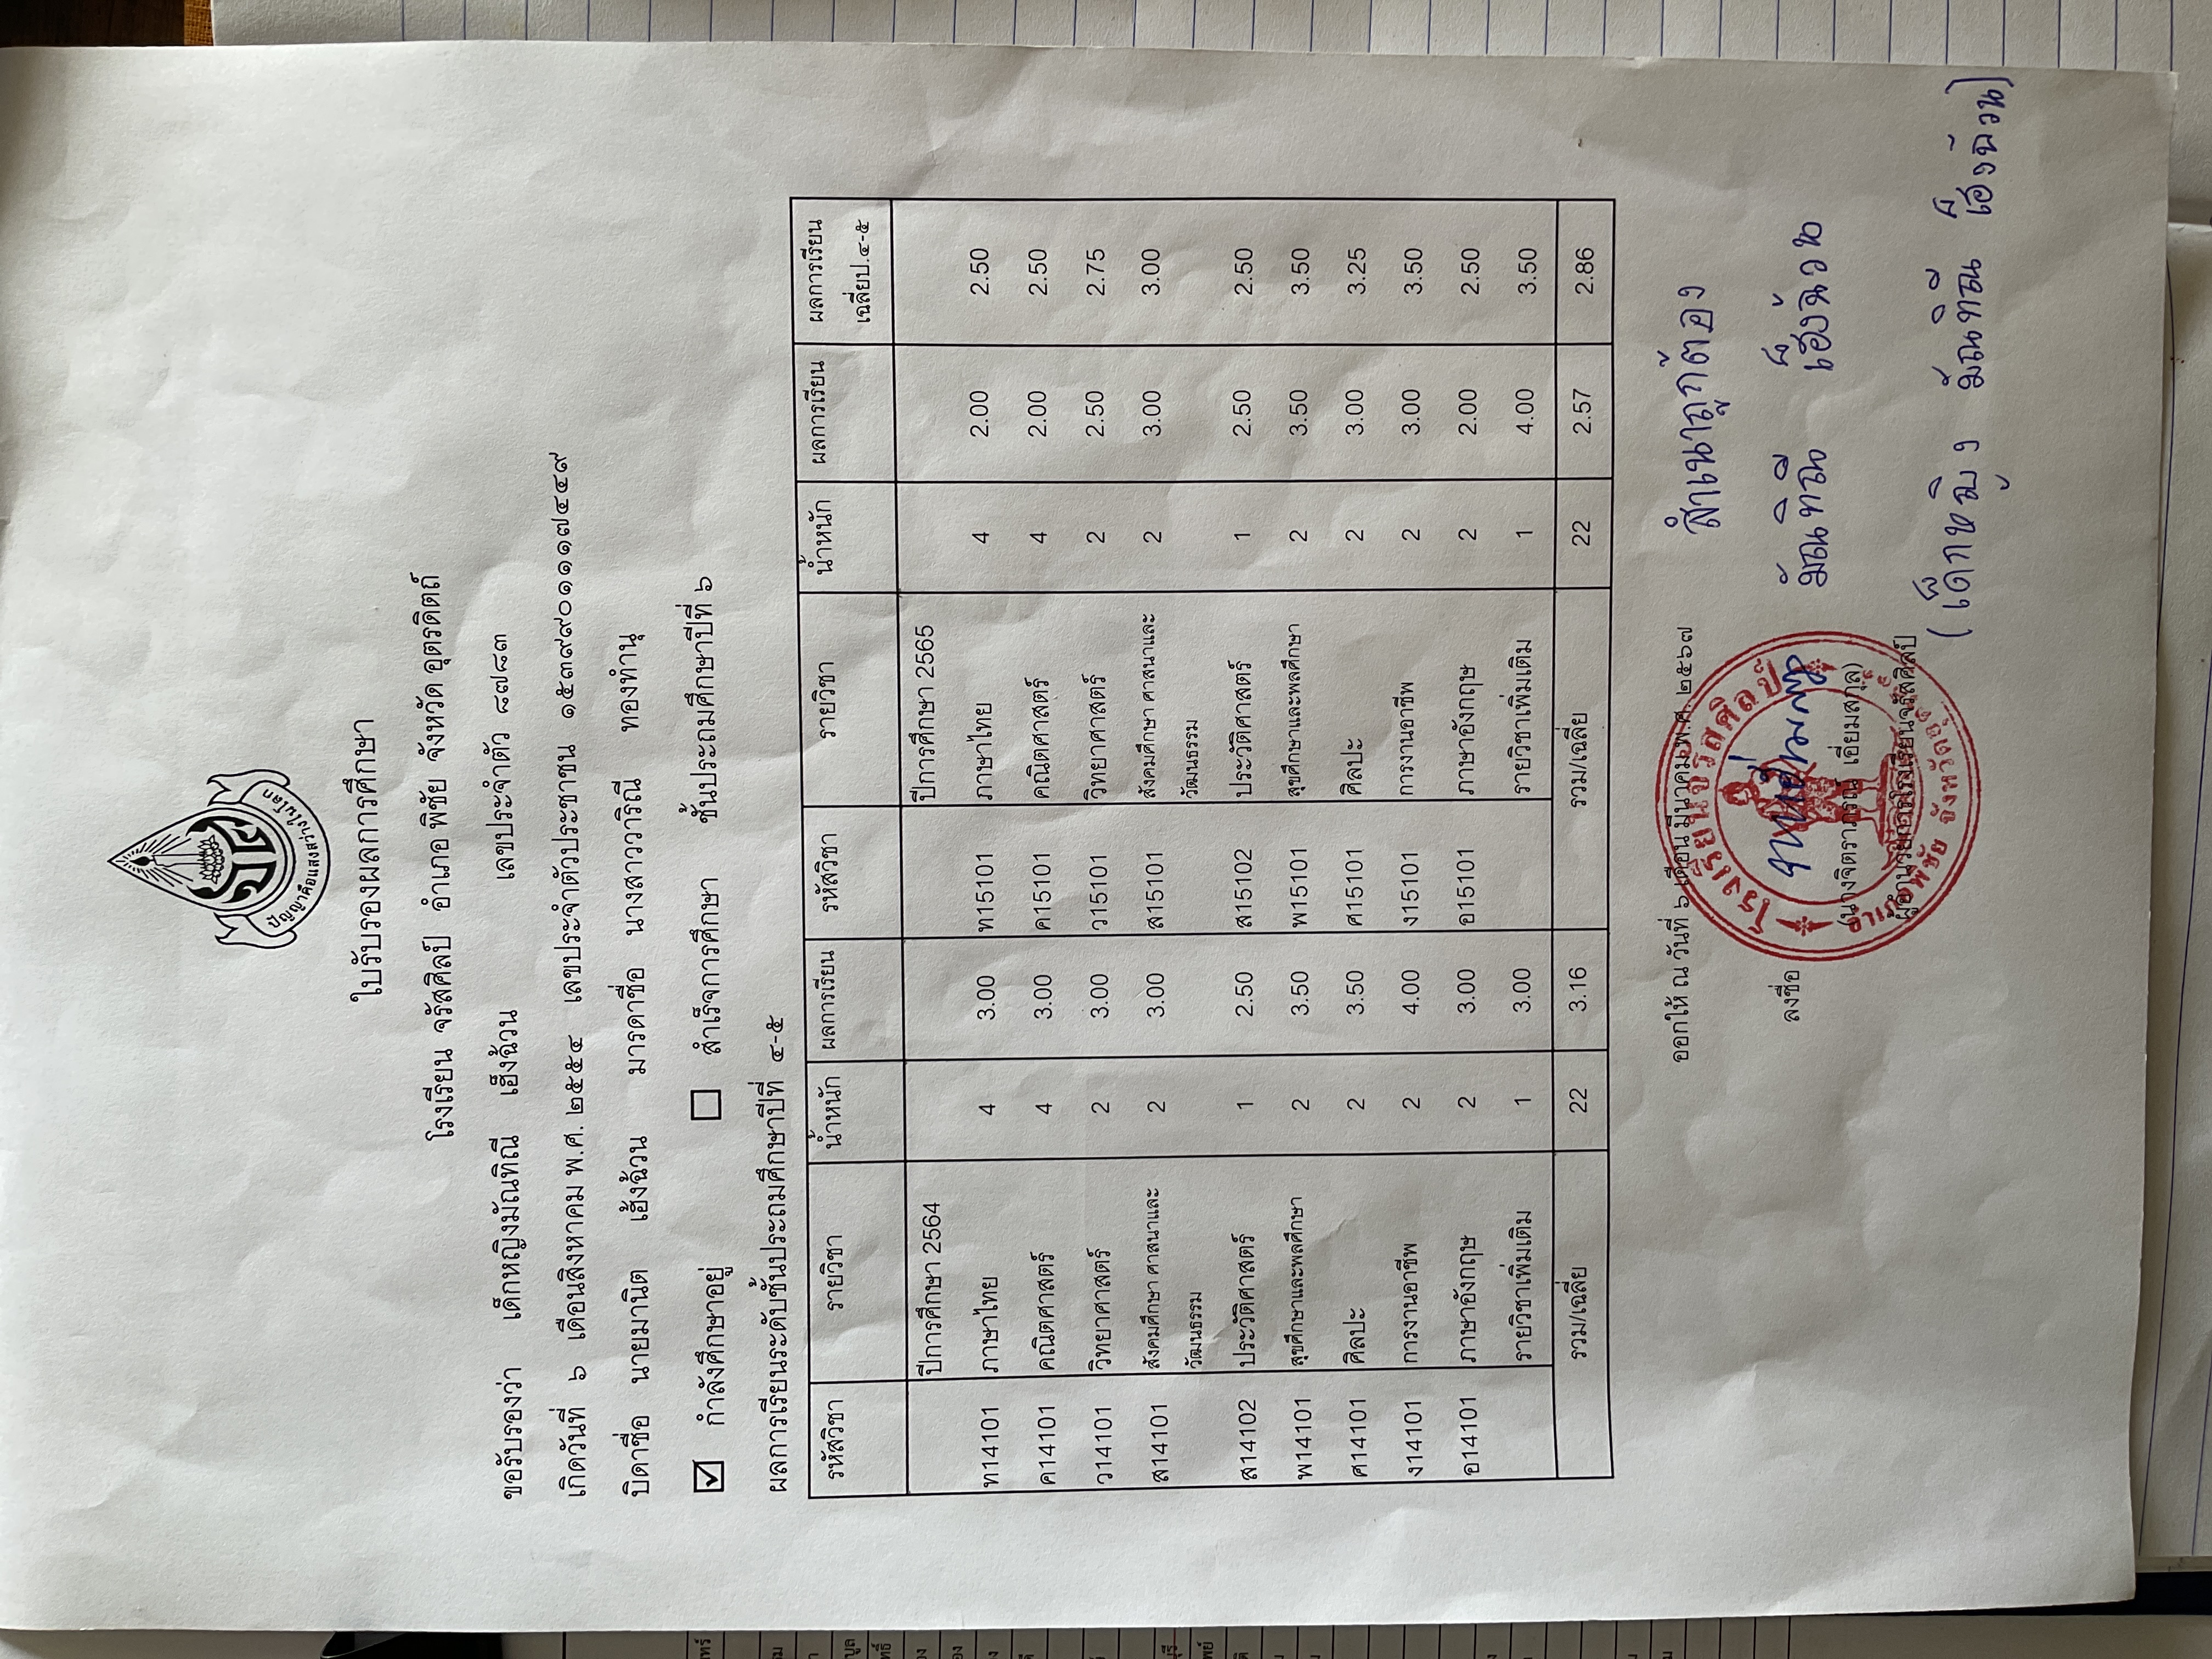 ปัญญาคือแสงสว่างในโลก
ใบรับรองผลการศึกษา
โรงเรียน จรัสศิลป์ อำเภอ พิชัย จังหวัด อุตรดิตถ์
ขอรับรองว่า เด็กหญิงมัณทิณี เฮ็งฉ้วน เลขประจำตัว ๘๗๘๓
เกิดวันที่ ๖ เดือนสิงหาคม พ.ศ. ๒๕๕๔ เลขประจำตัวประชาชน ๑๕๓๙๙๐๑๑๑๗๔๔๙
บิดาชื่อ นายมานิต เฮ็งฉ้วน มารดาชื่อ นางสาววาริณี ทองทำนุ
☑ กำลังศึกษาอยู่ ☐ สำเร็จการศึกษา ชั้นประถมศึกษาปีที่ ๖
ผลการเรียนระดับชั้นประถมศึกษาปีที่ ๔-๕
รหัสวิชา รายวิชา น้ำหนัก ผลการเรียน รหัสวิชา รายวิชา น้ำหนัก ผลการเรียน ผลการเรียน
เฉลี่ยป.๔-๕
ปีการศึกษา 2564 ปีการศึกษา 2565
ท14101 ภาษาไทย 4 3.00 ท15101 ภาษาไทย 4 2.00 2.50
ค14101 คณิตศาสตร์ 4 3.00 ค15101 คณิตศาสตร์ 4 2.00 2.50
ว14101 วิทยาศาสตร์ 2 3.00 ว15101 วิทยาศาสตร์ 2 2.50 2.75
ส14101 สังคมศึกษา ศาสนาและ 2 3.00 ส15101 สังคมศึกษา ศาสนาและ 2 3.00 3.00
วัฒนธรรม วัฒนธรรม
ส14102 ประวัติศาสตร์ 1 2.50 ส15102 ประวัติศาสตร์ 1 2.50 2.50
พ14101 สุขศึกษาและพลศึกษา 2 3.50 พ15101 สุขศึกษาและพลศึกษา 2 3.50 3.50
ศ14101 ศิลปะ 2 3.50 ศ15101 ศิลปะ 2 3.00 3.25
ง14101 การงานอาชีพ 2 4.00 ง15101 การงานอาชีพ 2 3.00 3.50
อ14101 ภาษาอังกฤษ 2 3.00 อ15101 ภาษาอังกฤษ 2 2.00 2.50
รายวิชาเพิ่มเติม 1 3.00 รายวิชาเพิ่มเติม 1 4.00 3.50
รวม/เฉลี่ย 22 3.16 รวม/เฉลี่ย 22 2.57 2.86
ออกให้ ณ วันที่ ๖ เดือน มีนาคม พ.ศ. ๒๕๖๗
สำเนาถูกต้อง
ลงชื่อ
มัณทิณี เฮ็งฉ้วน
(นางจิตราภรณ์ เอี่ยมสกุล)
ผู้อำนวยการโรงเรียนจรัสศิลป์
(เด็กหญิง มัณทิณี เฮ็งฉ้วน)
โรงเรียนจรัสศิลป์
อำเภอพิชัย จังหวัดอุตรดิตถ์